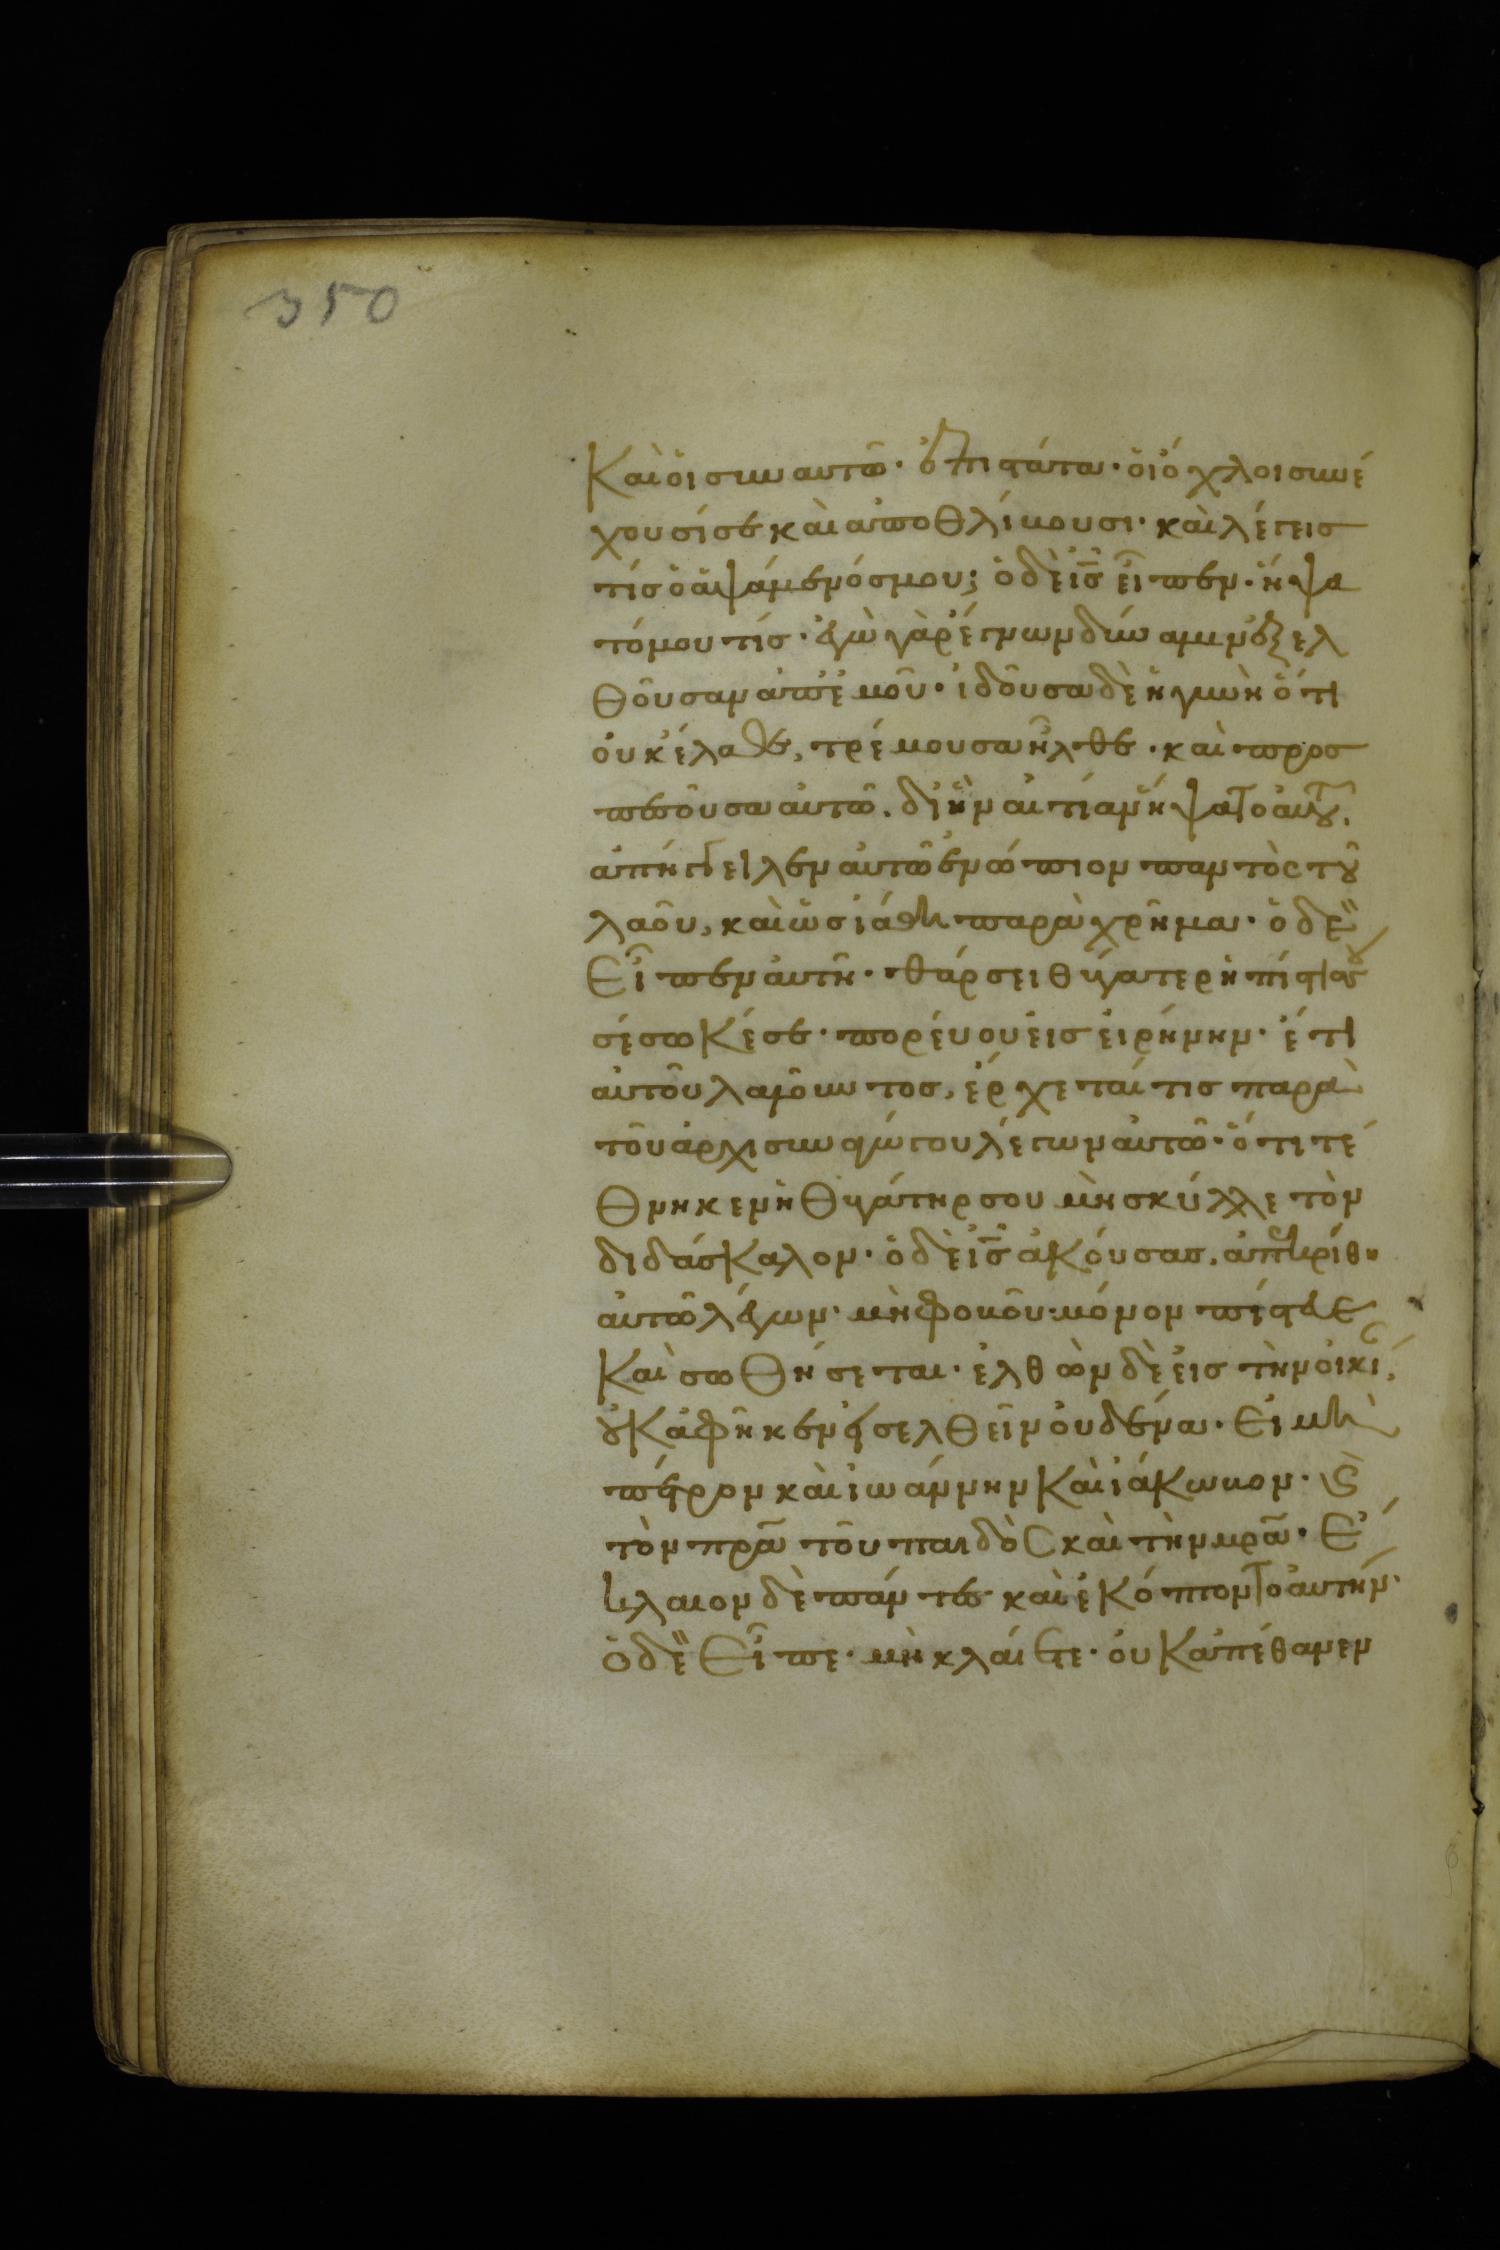 350
Καὶ ὁι συν αυτῶ· ἐπιστάτα· ὁι ὄχλοι συνέ
χουσίσε καὶ αποθλίβουσι· καὶ λέγεις
τίς ὁ ἁψάμενόσμου; ὁ δὲ ις̅ εἶπεν· ἥψα
τόμου τίς· ἐγὼ γὰρ έγνων δύναμιν ἐξελ
θοῦσαν ἀπ' ἐμοῦ· ἰδοῦσα δὲ ἡ γυνὴ ὅτι
ὀυκ έλαθε, τρέμουσα ἦλθε· καὶ προσ
πεσοῦσα ἀυτῶ. δι' ἣν αἰτίαν ἥψατο ἀυτοῦ,
ἀπήγγειλεν ἀυτῶ ἐνώπιον παντὸς τοῦ
λαοῦ, καὶ ὡσ ἰάθη παραχρῆμα· ὁ δὲ
Εἶπεν ἀυτῆ· θάρσει θύγατερ ἡ πίστις σου
σέσωκέσε· πορέυου ἐις ἐιρήνην· έτι
ἀυτοῦ λαλοῦντοσ, έρχεταί τισ παρὰ
τοῦ ἀρχισυναγώγου λέγων ἀυτῶ· ὅτι τέ
θνηκεν ἡ θυγάτηρ σου μὴ σκύλλε τὸν
διδάσκαλον· ὁ δὲ ις̅ ἀκόυσασ, ἀπεκρίθη
ἀυτῶ λέγων· μὴ φοβοῦ· μόνον πίστευε
Καὶ σωθήσεται· ἐλθὼν δὲ ἐις τὴν ὀικίαν,
ὀυκ ἀφῆκεν ἐισελθεῖν ὀυδένα· Εἰ μὴ
πέτρον καὶ ἰωάννην Καὶ ἰάκωβον· καὶ
τὸν πρ̅α τοῦ παιδὸς καὶ τὴν μρ̅α· Ἐ
κλαιον δὲ πάντεσ καὶ ἐκόπτοντο ἀυτήν·
ὁ δὲ Εἶπε· μὴ κλάιετε· ὀυκ ἀπέθανεν